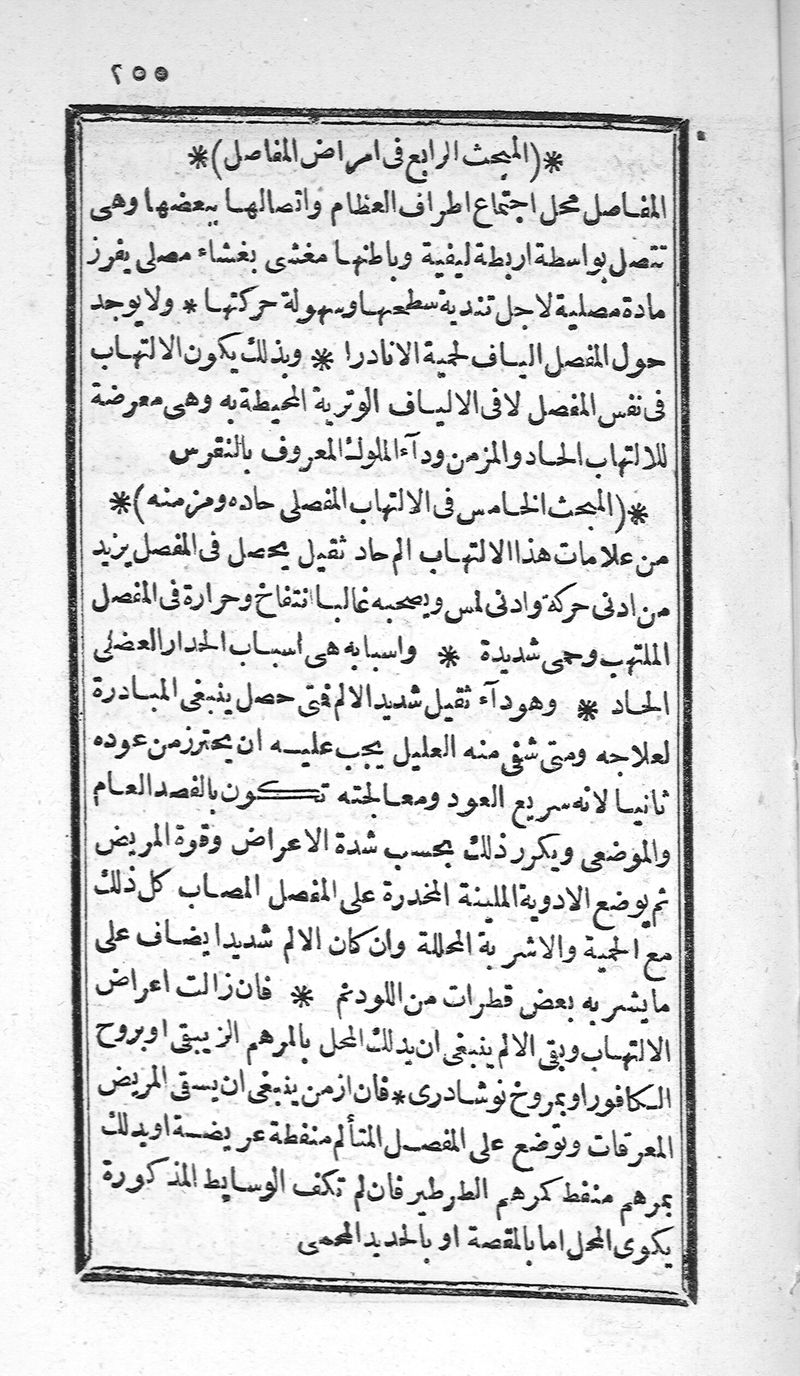 ٢٥٥
*(المبحث الرابع فى امراض المفاصل)*
المفاصل محل اجتماع اطراف العظام واتصالها ببعضها وهى
تتصل بواسطة اربطة ليفية وباطنها مغشى بغشاء مصلى يفرز
مادة مصلية لاجل تندية سطحها وسهولة حركتها * ولا يوجد
حول المفصل الياف لحمية الا نادرا * وبذلك يكون الالتهاب
فى نفس المفصل لا فى الالياف الوترية المحيطة به وهى معرضة
للالتهاب الحاد والمزمن ودآء الملوك المعروف بالنقرس
*(المبحث الخامس فى الالتهاب المفصلى حاده ومزمنه)*
من علامات هذا الالتهاب الم حاد ثقيل يحصل فى المفصل يزيد
من ادنى حركة وادنى لمس ويصحبه غالبا انتفاخ وحرارة فى المفصل
الملتهب وحمى شديدة * واسبابه هى اسباب الحدار العضلى
الحاد * وهو دآء ثقيل شديد الالم فمتى حصل ينبغى المبادرة
لعلاجه ومتى شفى منه العليل يجب عليه ان يحترز من عوده
ثانيا لانه سريع العود ومعالجته تكون بالفصد العام
والموضعى ويكرر ذلك بحسب شدة الاعراض وقوة المريض
ثم يوضع الادوية الملينة المخدرة على المفصل المصاب كل ذلك
مع الحمية والاشربة المحللة وان كان الالم شديدا يضاف على
ما يشربه بعض قطرات من اللودنم * فان زالت اعراض
الالتهاب وبقى الالم ينبغى ان يدلك المحل بالمرهم الزيبقى او بروح
الكافور او بمروخ نوشادرى * فان ازمن ينبغى ان يسقى المريض
المعرقات وتوضع على المفصل المتألم منفطة عريضة او يدلك
بمرهم منفط كمرهم الطرطير فان لم تكف الوسايط المذكورة
يكوى المحل اما بالمقصة او بالحديد المحمى